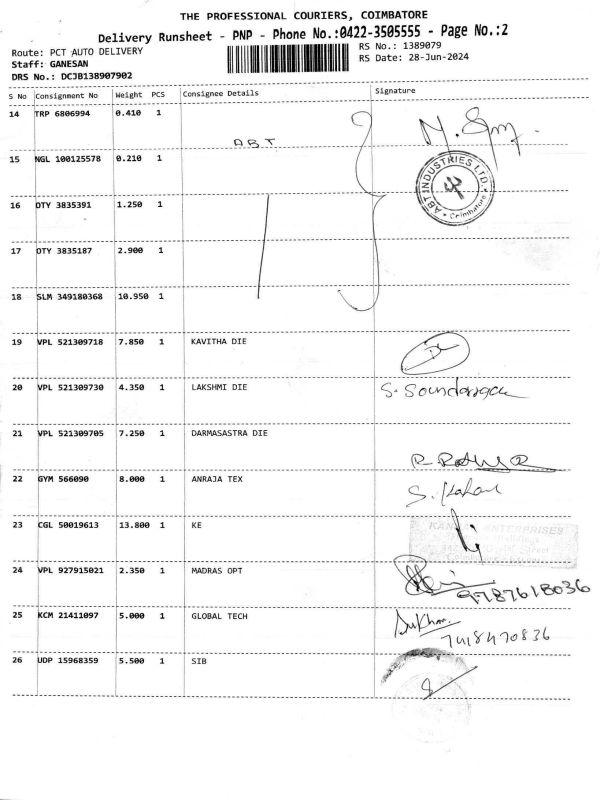 THE PROFESSIONAL COURIERS, COIMBATORE
Delivery Runsheet - PNP - Phone No.:0422-3505555 - Page No.:2
Route: PCT AUTO DELIVERY
RS No.: 1389079
Staff: GANESAN
RS Date: 28-Jun-2024
DRS No.: DCJB138907902
S No Consignment No Weight PCS Consignee Details Signature
14 TRP 6806994 0.410 1
ABT
15 NGL 100125578 0.210 1
ABT INDUSTRIES LTD. * Coimbatore *
16 OTY 3835391 1.250 1
17 OTY 3835187 2.900 1
18 SLM 349180368 10.950 1
19 VPL 521309718 7.850 1 KAVITHA DIE
20 VPL 521309730 4.350 1 LAKSHMI DIE
21 VPL 521309705 7.250 1 DARMASASTRA DIE
22 GYM 566090 8.000 1 ANRAJA TEX
23 CGL 50019613 13.800 1 KE
ENTERPRISES
Street
24 VPL 927915021 2.350 1 MADRAS OPT
9787618036
25 KCM 21411097 5.000 1 GLOBAL TECH
7418470836
26 UDP 15968359 5.500 1 SIB